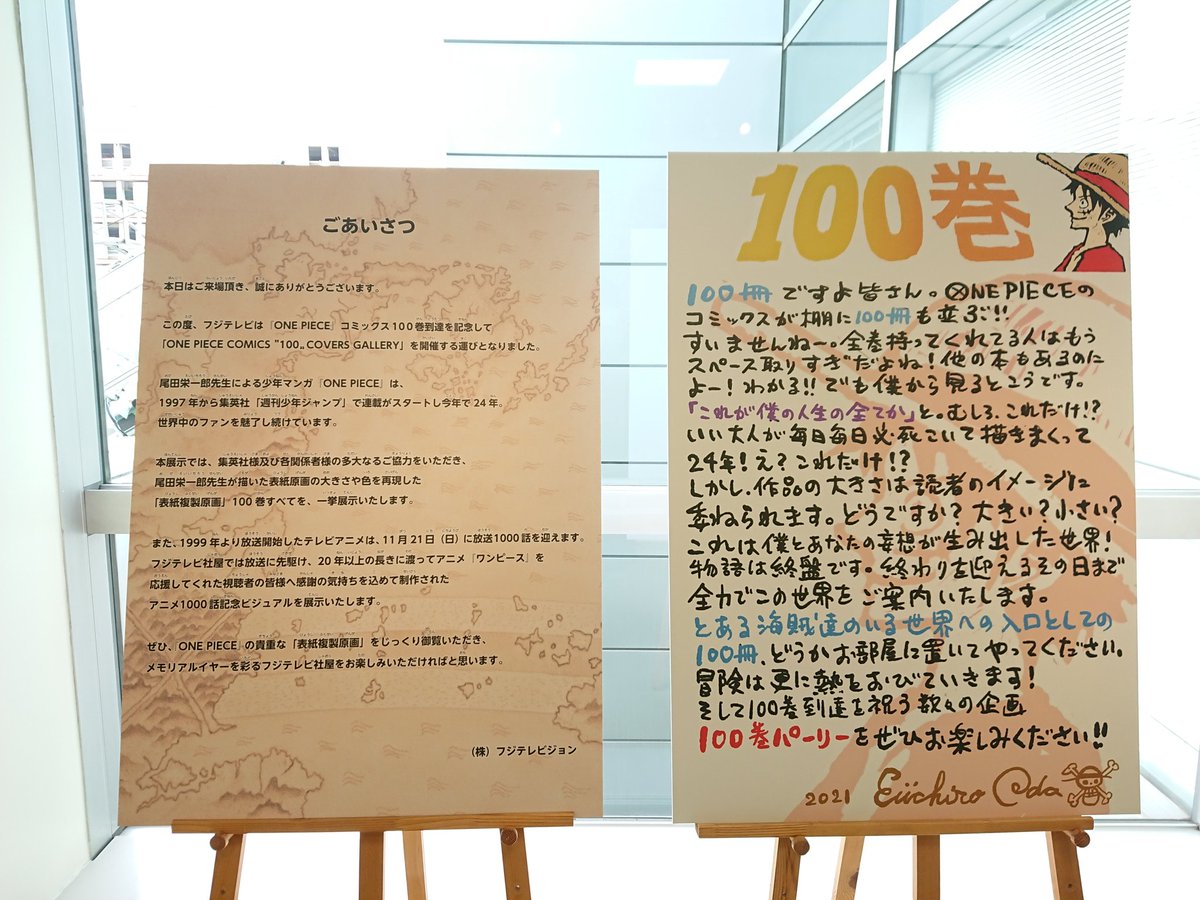 ごあいさつ
本日はご来場頂き、誠にありがとうございます。
この度、フジテレビは『ONE PIECE』コミックス100巻到達を記念して
「ONE PIECE COMICS "100" COVERS GALLERY」を開催する運びとなりました。
尾田栄一郎先生による少年マンガ『ONE PIECE』は、
1997年から集英社「週刊少年ジャンプ」で連載がスタートし今年で24年。
世界中のファンを魅了し続けています。
本展示では、集英社様及び各関係者様の多大なるご協力をいただき、
尾田栄一郎先生が描いた表紙原画の大きさや色を再現した
「表紙複製原画」100巻すべてを、一挙展示いたします。
また、1999年より放送開始したテレビアニメは、11月21日（日）に放送1000話を迎えます。
フジテレビ社屋では放送に先駆け、20年以上の長きに渡ってアニメ『ワンピース』を
応援してくれた視聴者の皆様へ感謝の気持ちを込めて制作された
アニメ1000話記念ビジュアルを展示いたします。
ぜひ、ONE PIECEの貴重な「表紙複製原画」をじっくり御覧いただき、
メモリアルイヤーを彩るフジテレビ社屋をお楽しみいただければと思います。
（株）フジテレビジョン
100巻
100冊ですよ皆さん。ONE PIECEの
コミックスが棚に100冊も並ぶ!!
すいませんねー。全巻持ってくれてる人はもう
スペース取りすぎだよね！他の本もあるのに
よー！わかる!!でも僕から見るとこうです。
「これが僕の人生の全てか」と。むしろ、これだけ!?
いい大人が毎日毎日必死こいて描きまくって
24年！え？これだけ!?
しかし、作品の大きさは読者のイメージに
委ねられます。どうですか？大きい？小さい？
これは僕とあなたの妄想が生み出した世界！
物語は終盤です。終わりを迎えるその日まで
全力でこの世界をご案内いたします。
とある海賊達のいる世界への入口としての
100冊、どうかお部屋に置いてやってください。
冒険は更に熱をおびていきます！
そして100巻到達を祝う数々の企画
100巻パーリーをぜひお楽しみください!!
2021 Eiichiro Oda